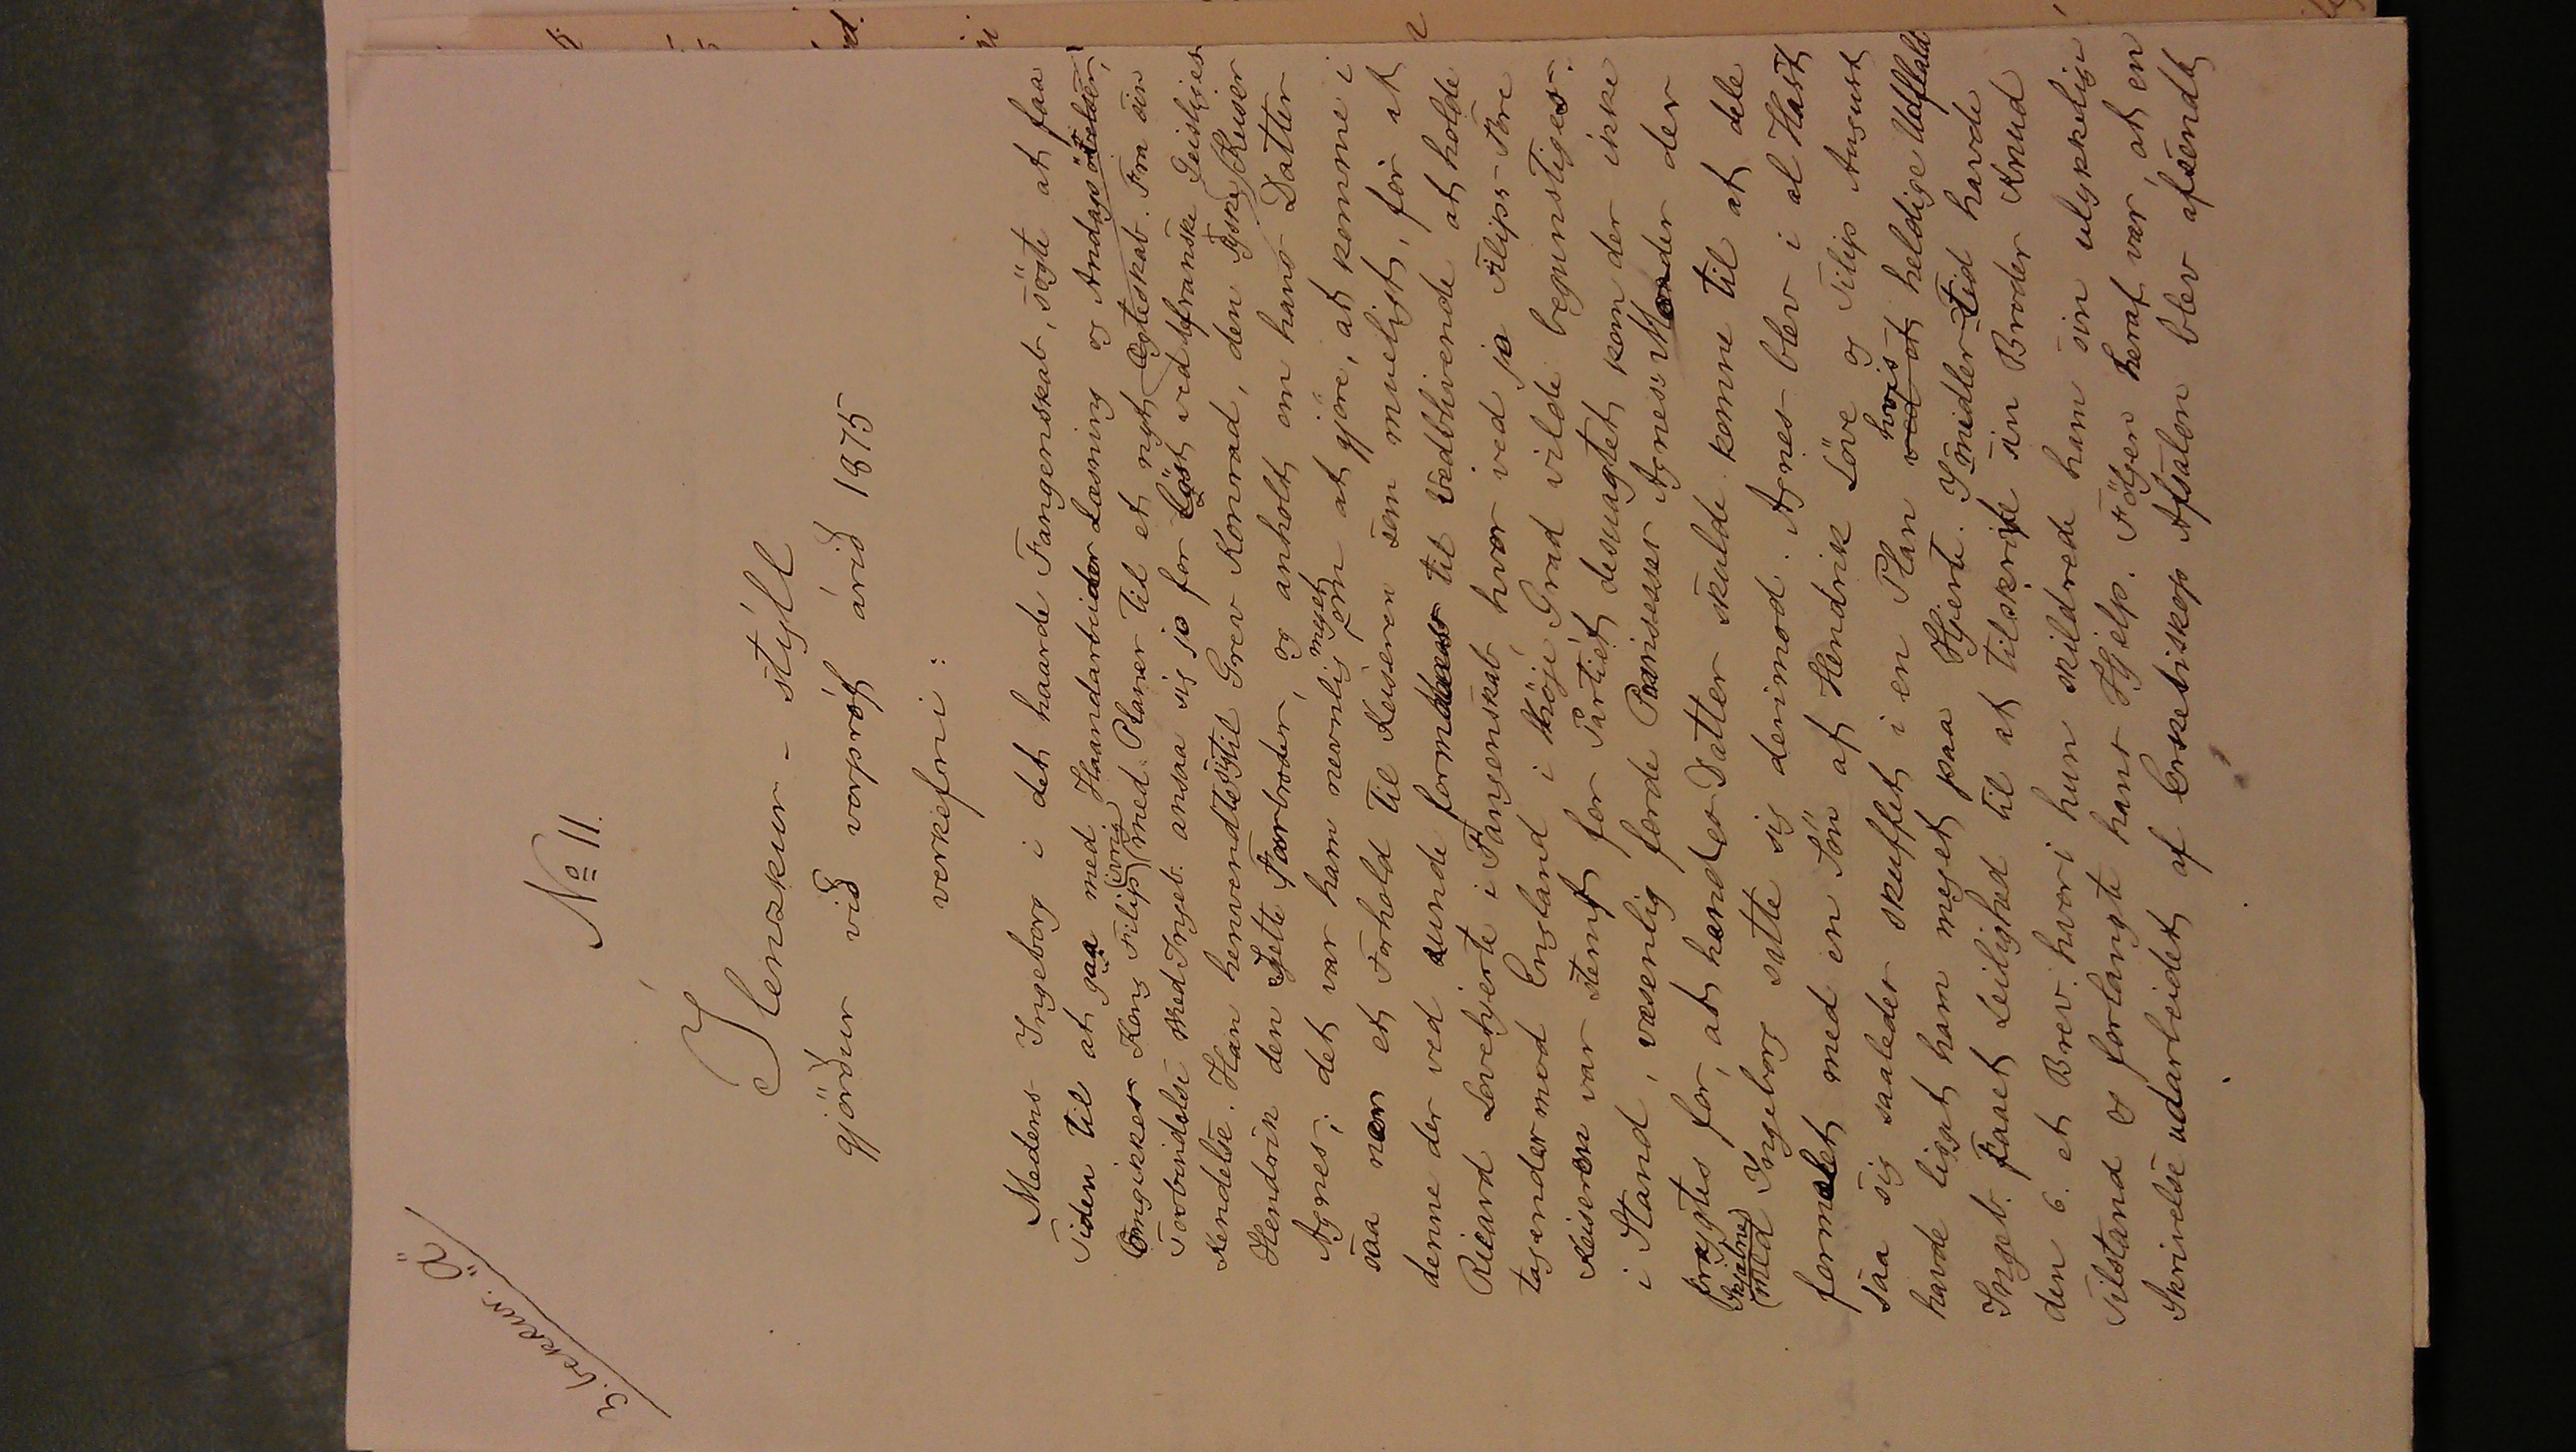 3. bekkur. B
No 11.
Íslenzkur - stýll
gjörður við vorpróf árið 1875
verkefni:
Medens Ingeborg i det haarde Fangenskab, søgte at faa
Tiden til at gaa med Haandarbeider Læsning og Andagsøvelser,
Omgikkes Kong Filip (svig) med Planer til et nyt Egteskab. Fra sin
Forbindelse med Ingeb. ansaa sig jo for løst ved d. franske Geistliges
Kendelse. Han henvendte sig til Grev Konrad, den tyske Keiser
Hendrik den Sjette Farbroder, og anholdt om hans Datter
Agnes; det var ham nemlig meget om at gjøre, at komme i
saa nær et Forhold til Keiseren som mueligt, for at
denne der ved kunde formaaes til vedblivende at holde
Ricard Løvehjerte i Fangenskab hvor ved jo Filips Fore
tagender mod England i høje Grad vilde begunstiges.
Keiseren var stemt for Partiet desuagtet kom der ikke
i Stand, væsenlig forde Prinsesse Agnes's Moder der
frygtes for, at hendes Datter skulde komme til at dele
Skjæbne
med Ingeborg satte sig derimod. Agnes blev i al Hast
formælet med en Søn af Hendrik Løve og Filip August
saa sig saaledes skuffet i en Plan ved et hvis heldige Udffald
havde ligget ham meget paa Hjerte. Imidler-tid havde
Ingeb. faaet Leilighed til at tilskrive sin Broder Knud
den 6. et Brev hvori hun skildrede ham sin ulykkelige
Tilstand og forlangte hans Hjelp. Følgen heraf var, at en
Skrivelse udarbeidet af Erkebiskop Absalon blev afsendt